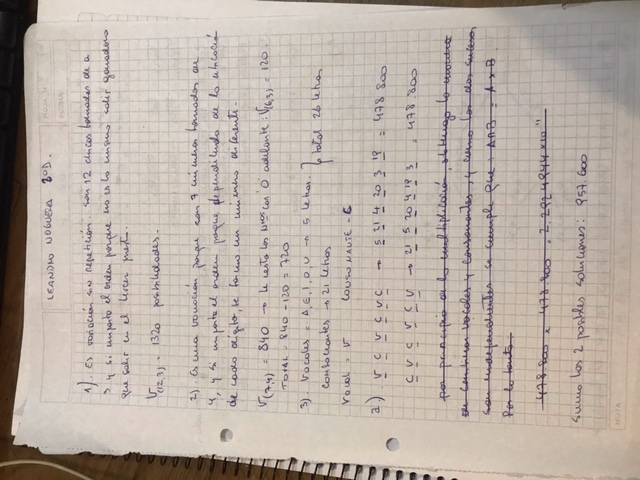 LEANDRO NOGUERA 2ºD.
HOJA Nº
FECHA
1). Es variación sin repetición. Son 12 chicas tomadas de a
3 y si importa el orden porque no es lo mismo salir ganadora
que salir en el tercer puesto.
V(12,3) = 1320 posibilidades.
2) Es una variación porque son 7 números tomados de
4, y si importa el orden porque dependiendo de la ubicación
de cada dígito, te forma un número diferente.
V(7,4) = 840 → le resto los Nros con '0' adelante: V(6,3) = 120.
TOTAL = 840 - 120 = 720
3). Vocales = A, E, I, O, U → 5 letras. } total 26 letras
consonantes → 21 letras
Vocal = V CONSONANTE = C
a). V C V C V C → 5 21 4 20 3 19 = 478.800
C V C V C V → 21 5 20 4 19 3 = 478.800
por principio de la multiplicación, obtengo la
de combinar vocales y consonantes, y como los dos sucesos
son independientes se cumple que: A∩B = A x B.
Por lo tanto
478.800 x 478.800 = 2.2924944 x 10¹¹
sumo las 2 posibles soluciones: 957.600
NOTA